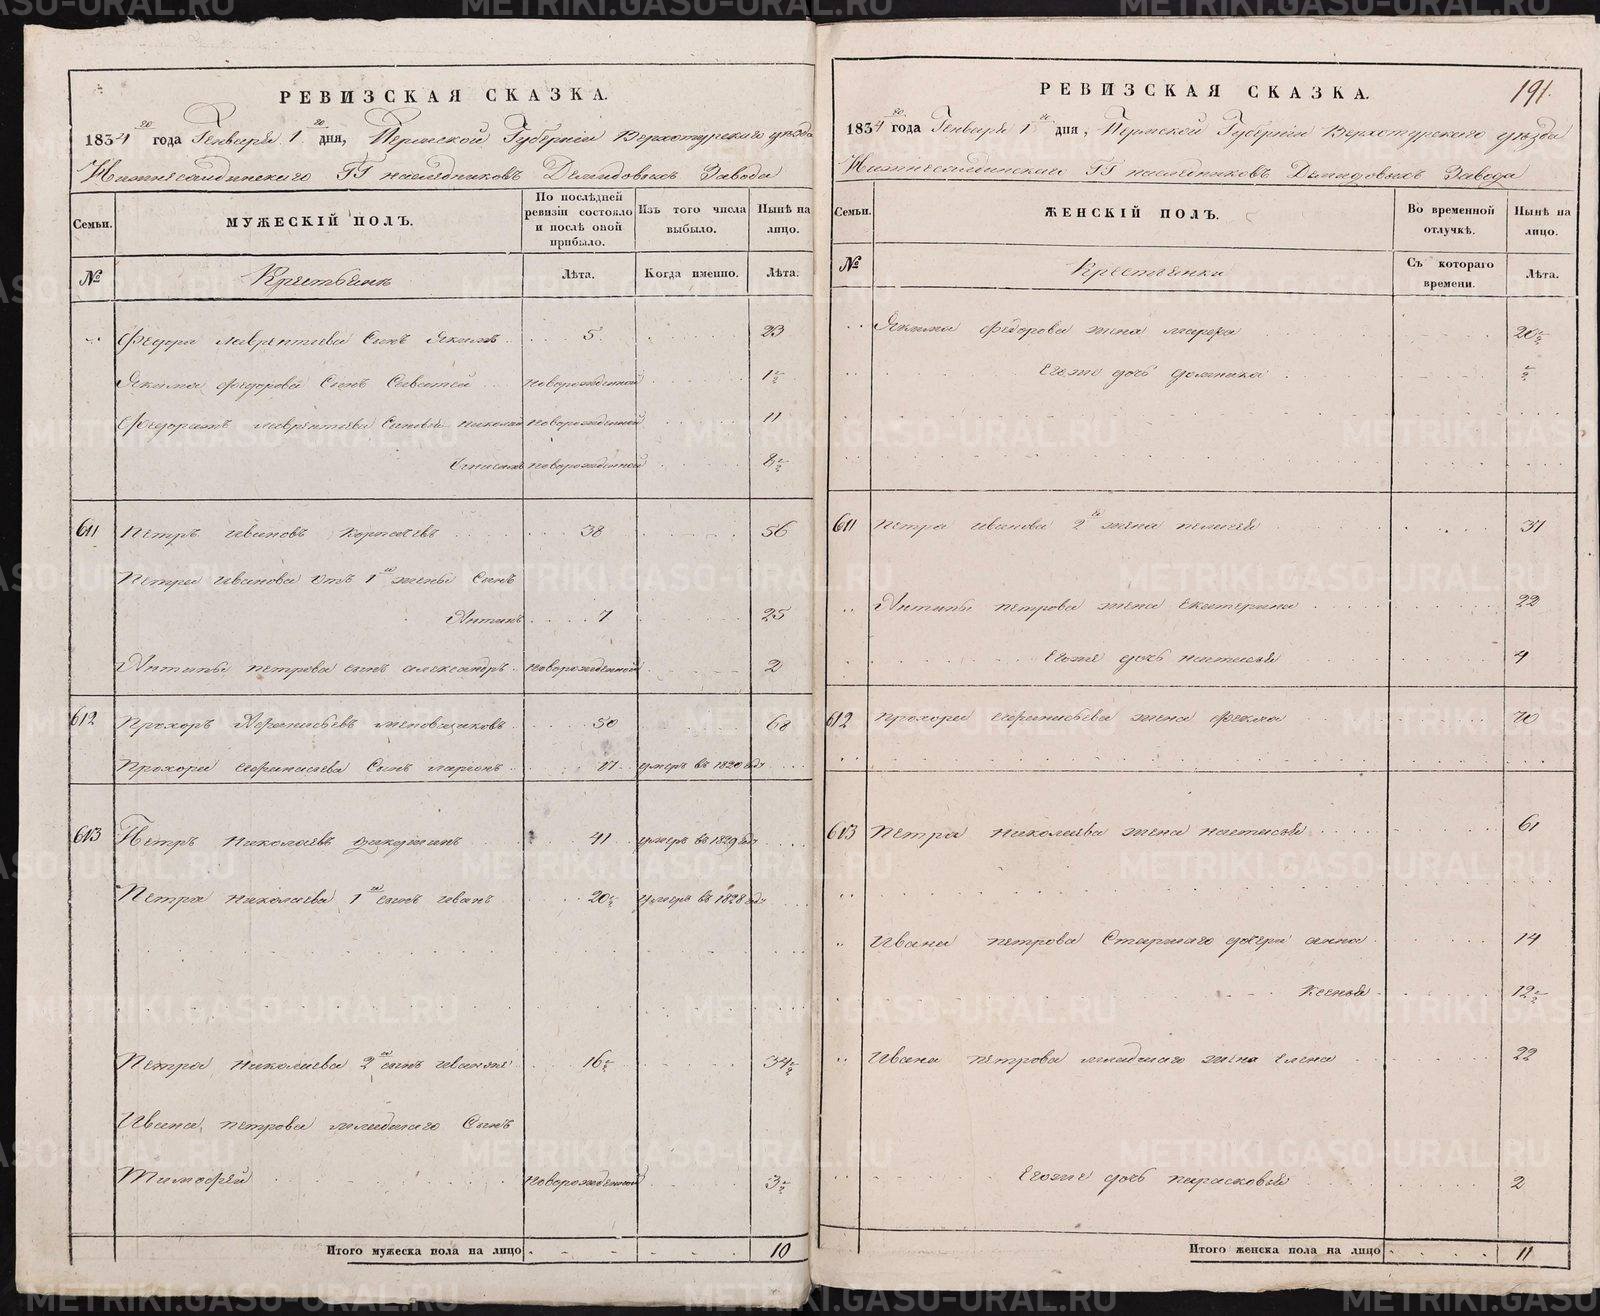 РЕВИЗСКАЯ СКАЗКА.
1834 го года Генваря 1 го дня, Пермской Губернии Верхотурского уѣзда
Нижнесалдинскаго ГГ наслѣдниковъ Демидовыхъ Завода
Семьи.
МУЖЕСКІЙ ПОЛЪ.
По послѣдней ревизіи состояло и послѣ оной прибыло.
Изъ того числа выбыло.
Нынѣ на лицо.
№
Крестьянъ
Лѣта.
Когда именно.
Лѣта.
Федора лаврентьева Сынъ Якимъ 5 23
Якима федорова Сынъ Савватей новорожденной 1½
Федоромъ лаврентьева Сыновья николай новорожденной 11
новорожденной 8½
611 Петръ Ивановъ 38 56
Петра Иванова Отъ 1й жены Сынъ
Антипъ 7 25
Антипы петрова сынъ александръ новорожденной 2
612 Прохоръ Афанасьевъ меновщиковъ 50 68
Прохора Афанасьева Сынъ ларионъ 17 умеръ въ 1820 году
613 Петръ Николаевъ 41 умеръ въ 1829 году
Петра николаева 1й сынъ иванъ 20½ умеръ въ 1828 году
Петра Николаева 2й сынъ иванъже 16½ 34½
Ивана петрова младшаго Сынъ
Тимофей новорожденной 3½
Итого мужеска пола на лицо 10
191.
РЕВИЗСКАЯ СКАЗКА.
1834 го года Генваря 1 го дня, Пермской Губернии Верхотурскаго уѣзда
Нижнесалдинскаго ГГ наслѣдниковъ Демидовыхъ Завода
Семьи.
ЖЕНСКІЙ ПОЛЪ.
Во временной отлучкѣ.
Нынѣ на лицо.
№
Крестьянки
Съ котораго времени.
Лѣта.
Якима Федорова жена марфа 20½
Егоже дочь домника ½
611 Петра Иванова 2я жена пелагея 31
Антипы петрова жена екатерина 22
Егоже дочь настасья 4
612 Прохора афанасьева жена фекла 70
613 Петра Николаева жена настасья 61
Ивана петрова Старшаго дочери анна 14
Ксенья 12½
Ивана петрова младшаго жена елена 22
Егоже дочь парасковья 2
Итого женска пола на лицо 11
METRIKI.GASO-URAL.RU